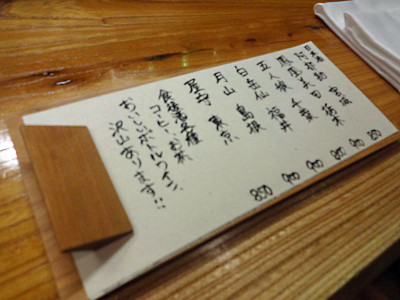 日本酒
阿部勘 宮城 850
鳳凰美田 栃木 900
五人娘 千葉 850
白岳仙 福井 900
月山 島根 900
屋守 東京 850
食後酒各種
コーヒー、お茶
おいしいボトルワイン、
沢山あります!!